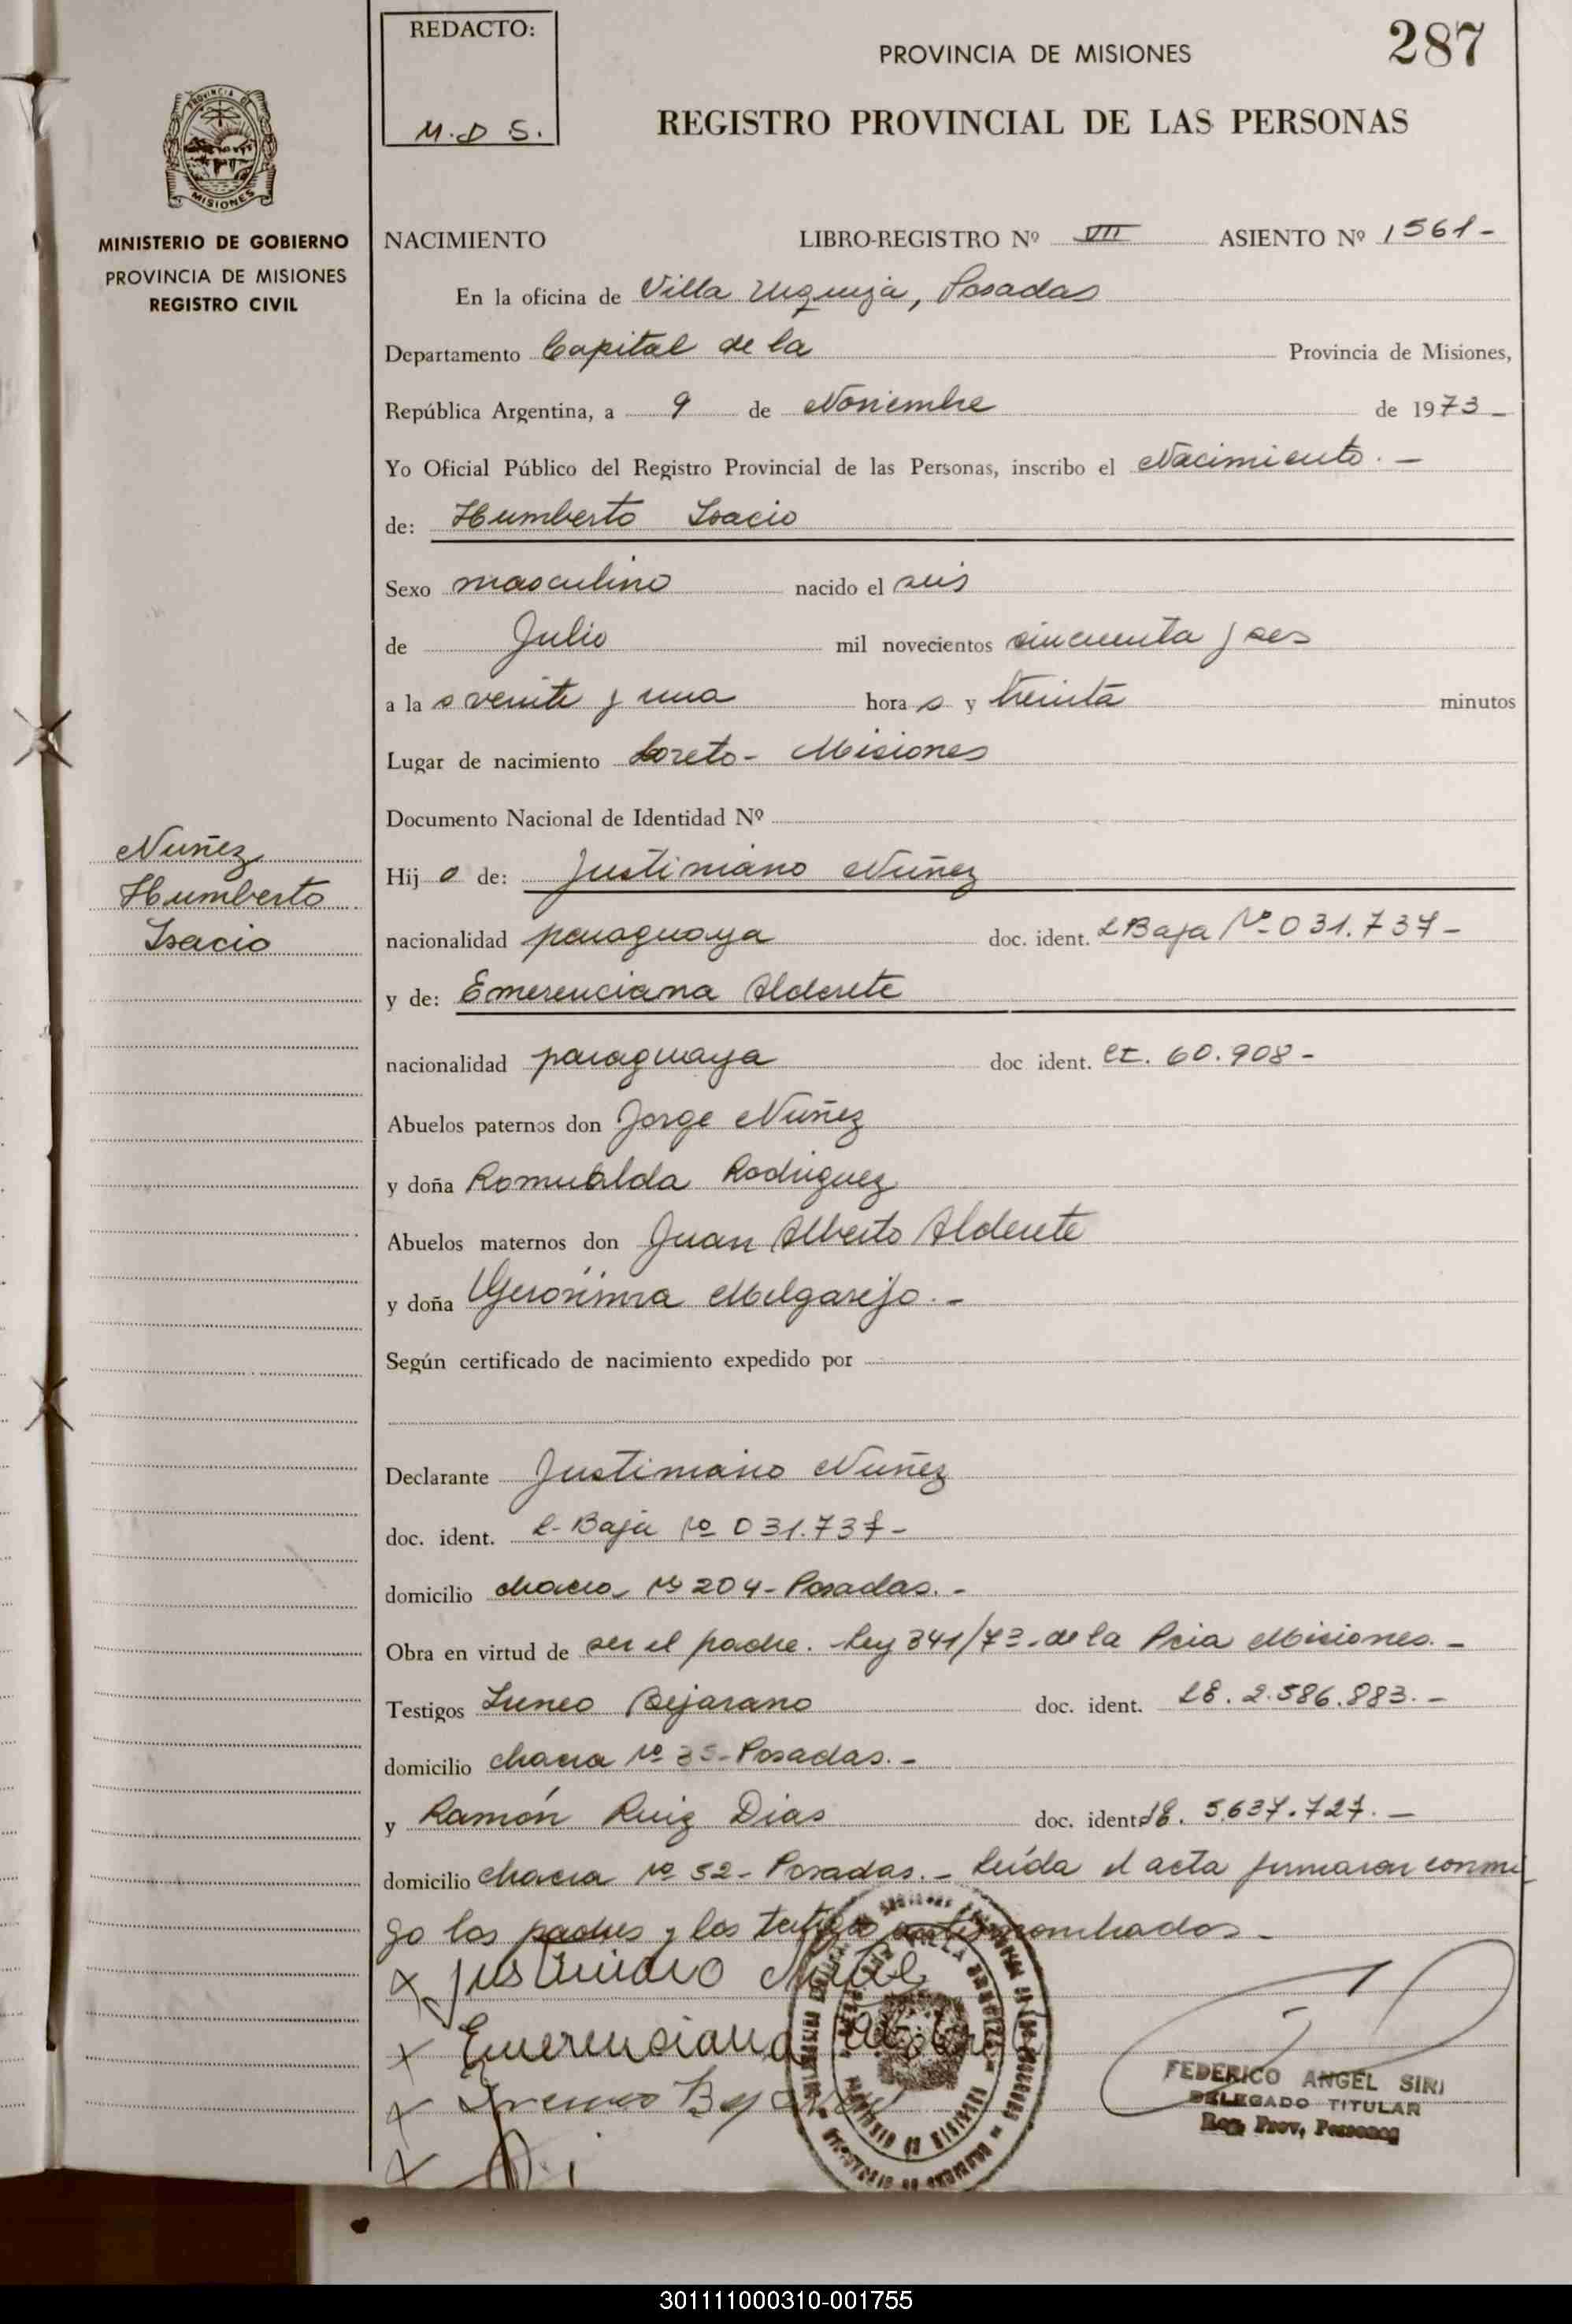 REDACTO:
M.D S.
PROVINCIA DE MISIONES
287
REGISTRO PROVINCIAL DE LAS PERSONAS
PROVINCIA DE
MISIONES
MINISTERIO DE GOBIERNO
PROVINCIA DE MISIONES
REGISTRO CIVIL
NACIMIENTO LIBRO-REGISTRO Nº VII ASIENTO Nº 1561-
En la oficina de Villa Urquiza, Posadas
Departamento Capital de la Provincia de Misiones,
República Argentina, a 9 de Noviembre de 1973-
Yo Oficial Público del Registro Provincial de las Personas, inscribo el Nacimiento.-
de: Humberto Isacio
Sexo masculino nacido el seis
de Julio mil novecientos cincuenta y seis
a la s veinte y una hora s y treinta minutos
Lugar de nacimiento Loreto- Misiones
Documento Nacional de Identidad Nº
Nuñez
Humberto
Isacio
Hij o de: Justiniano Nuñez
nacionalidad paraguaya doc. ident. L Baja Nº 031.737-
y de: Emerenciana Alderete
nacionalidad paraguaya doc ident. 60.908-
Abuelos paternos don Jorge Nuñez
y doña Romualda Rodriguez
Abuelos maternos don Juan Alberto Alderete
y doña Gerónima Melgarejo.-
Según certificado de nacimiento expedido por
Declarante Justiniano Nuñez
doc. ident. L- Baja Nº 031.737-
domicilio chacra Nº 204- Posadas.-
Obra en virtud de ser el padre. Ley 341/73-de la Pcia Misiones.-
Testigos Ireneo Bejarano doc. ident. 2.586.883.-
domicilio chacra Nº 35- Posadas.-
y Ramón Ruiz Dias doc. ident. 5.637.727.-
domicilio chacra Nº 52- Posadas.- Leída el acta firmaron conmi
go los padres y los testigos antes nombrados-
x Justiniano
x Emerenciana
x Ireneo Bejarano
x
FEDERICO ANGEL SIRI
DELEGADO TITULAR
Reg. Prov. Personas
301111000310-001755